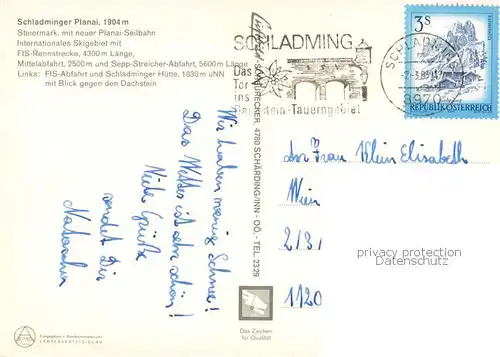 Schladminger Planai, 1904 m
Steiermark, mit neuer Planai-Seilbahn
Internationales Skigebiet mit
FIS-Rennstrecke, 4300 m Länge,
Mittelabfahrt, 2500 m und Sepp-Streicher-Abfahrt, 5600 m Länge
Links: FIS-Abfahrt und Schladminger Hütte, 1830 m üNN
mit Blick gegen den Dachstein
SCHLADMING
Das
Tor
ins
Dachstein-Tauerngebiet
SCHLADMING
8970
3 S
REPUBLIK ÖSTERREICH
4780 SCHÄRDING/INN - OÖ. - TEL. 2329
Wir haben wenig Schnee!
Das Wetter ist sehr schön!
Viele Grüße
sendet Dir
Natascha
An Frau Klein Elisabeth
Wien
2/3/
1120
privacy protection
Datenschutz
Das Zeichen
für Qualität
LANDESVERTEIDIGUNG